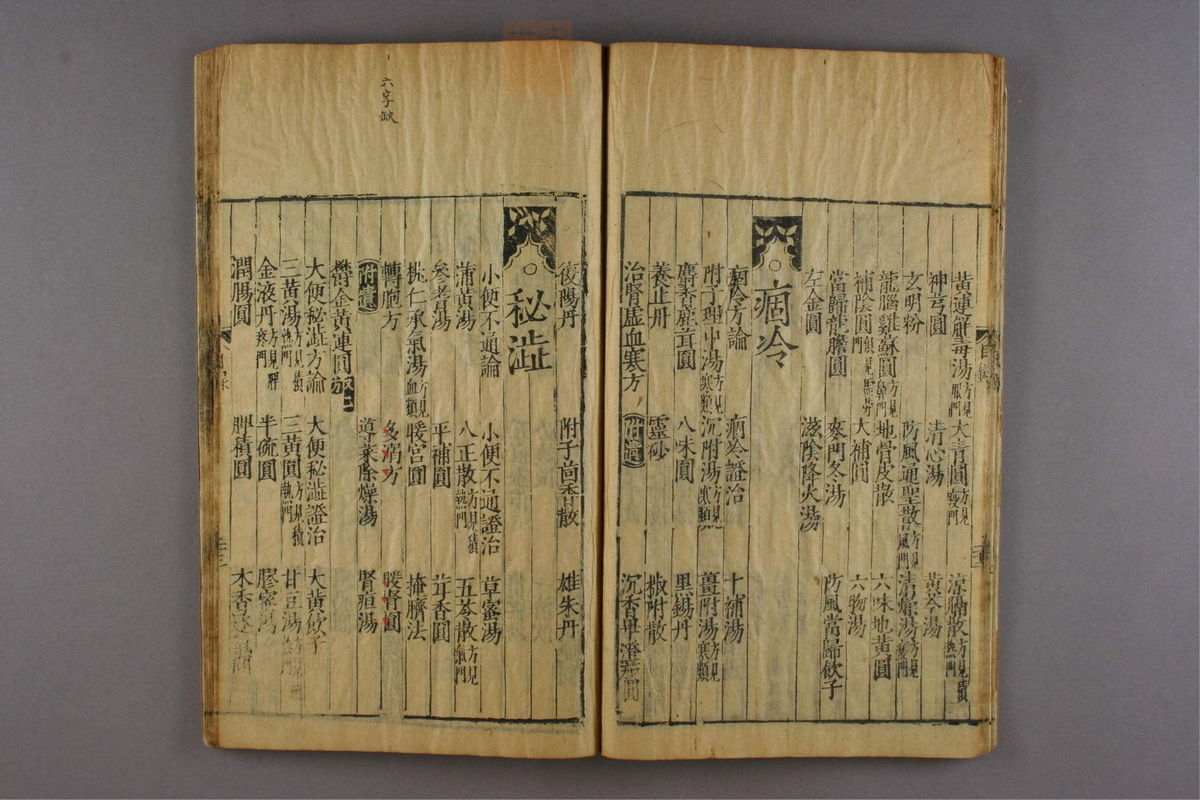 黃連解毒湯方見眼門 大青圓 涼膈散方見積熱門
神芎圓 清心湯 黃芩湯
玄明粉 防風通聖散方見風門 清涼湯
龍腦雞蘇圓方見鼻門 地骨皮散 六味地黃圓
補陰圓方見虛勞門 大補圓 六物湯
當歸龍膽圓 麥門冬湯 防風當歸飲子
左金圓 滋陰降火湯
痼冷
痼冷方論 痼冷證治 十補湯
附子理中湯方見寒類 沉附湯方見寒類 薑附湯方見寒類
麝香鹿茸圓 八味圓 黑錫丹
養正丹 靈砂 椒附散
治腎虛血寒方 附遺 沉香蓽澄茄圓
目錄
復陽丹 附子茴香散 雄朱丹
秘澁
小便不通論 小便不通證治 草蜜湯
蒲黃湯 八正散方見積熱門 五苓散方見氣門
參耆湯 平補圓 茸香圓
桃仁承氣湯方見血類 暖宮圓 掩臍法
轉胞方 多溺方 暖腎圓
附遺 導赤除燥湯 腎疸湯
鬱金黃連圓
大便秘澁方論 大便秘澁證治 大黃飲子
三黃湯方見積熱門 三黃圓方見積熱門 甘豆湯
金液丹 半硫圓 膠蜜湯
潤腸圓 脾積圓 木香
六字缺